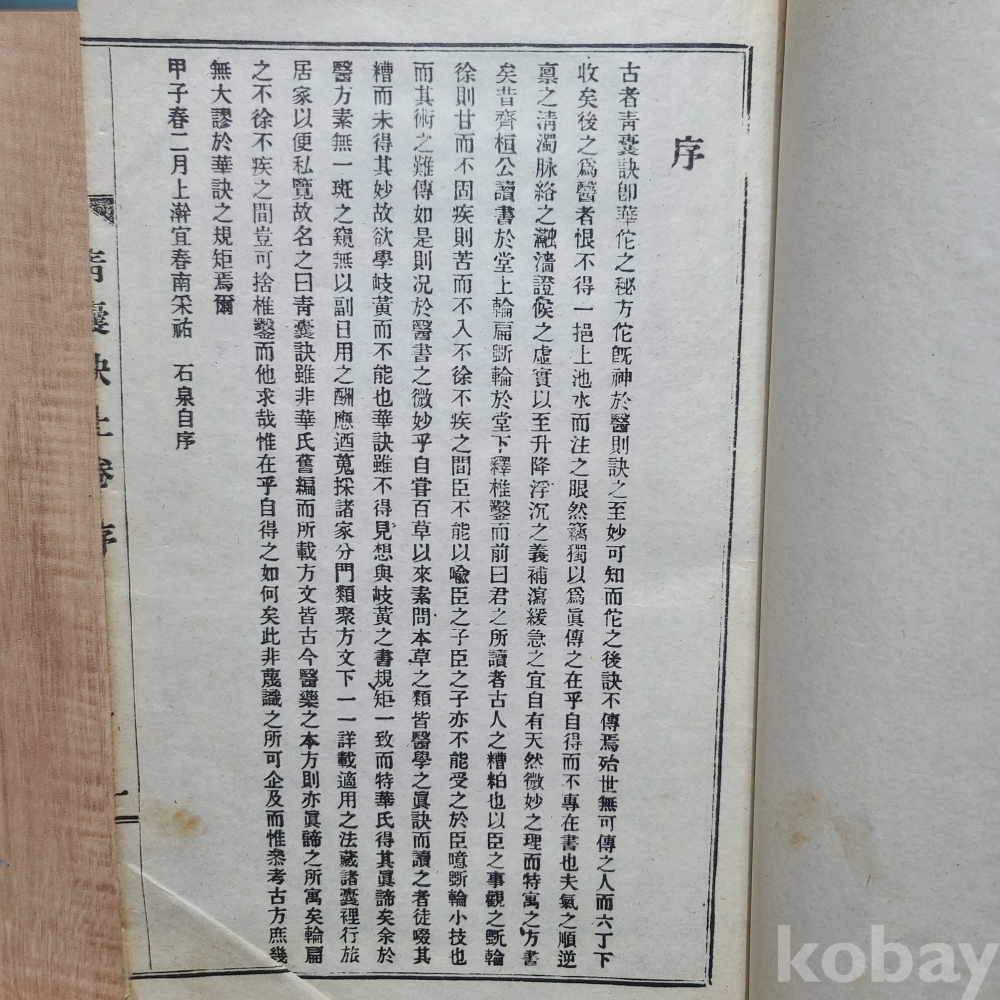 序
古者靑囊訣卽華佗之秘方佗旣神於醫則訣之至妙可知而佗之後訣不傳焉殆世無可傳之人而六丁下
收矣後之爲醫者恨不得一挹上池水而注之眼然竊獨以爲眞傳之在乎自得而不專在書也夫氣之順逆
禀之淸濁脉絡之瀜濇證候之虛實以至升降浮沉之義補瀉緩急之宜自有天然微妙之理而特寓之方書
矣昔齊桓公讀書於堂上輪扁斲輪於堂下釋椎鑿而前曰君之所讀者古人之糟粕也以臣之事觀之斲輪
徐則甘而不固疾則苦而不入不徐不疾之間臣不能以喩臣之子臣之子亦不能受之於臣噫斲輪小技也
而其術之難傳如是則况於醫書之微妙乎自甞百草以來素問本草之類皆醫學之眞訣而讀之者徒啜其
糟而未得其妙故欲學岐黃而不能也華訣雖不得見想與岐黃之書規矩一致而特華氏得其眞諦矣余於
醫方素無一斑之窺無以副日用之酬應迺蒐採諸家分門類聚方文下一一詳載適用之法藏諸囊裡行旅
居家以便私覽故名之曰靑囊訣雖非華氏舊編而所載方文皆古今醫藥之本方則亦眞諦之所寓矣輪扁
之不徐不疾之間豈可捨椎鑿而他求哉惟在乎自得之如何矣此非蔑識之所可企及而惟叅考古方庶幾
無大謬於華訣之規矩焉爾
甲子春二月上澣宜春南采祐 石泉自序
靑囊訣上卷 序
一
kobay